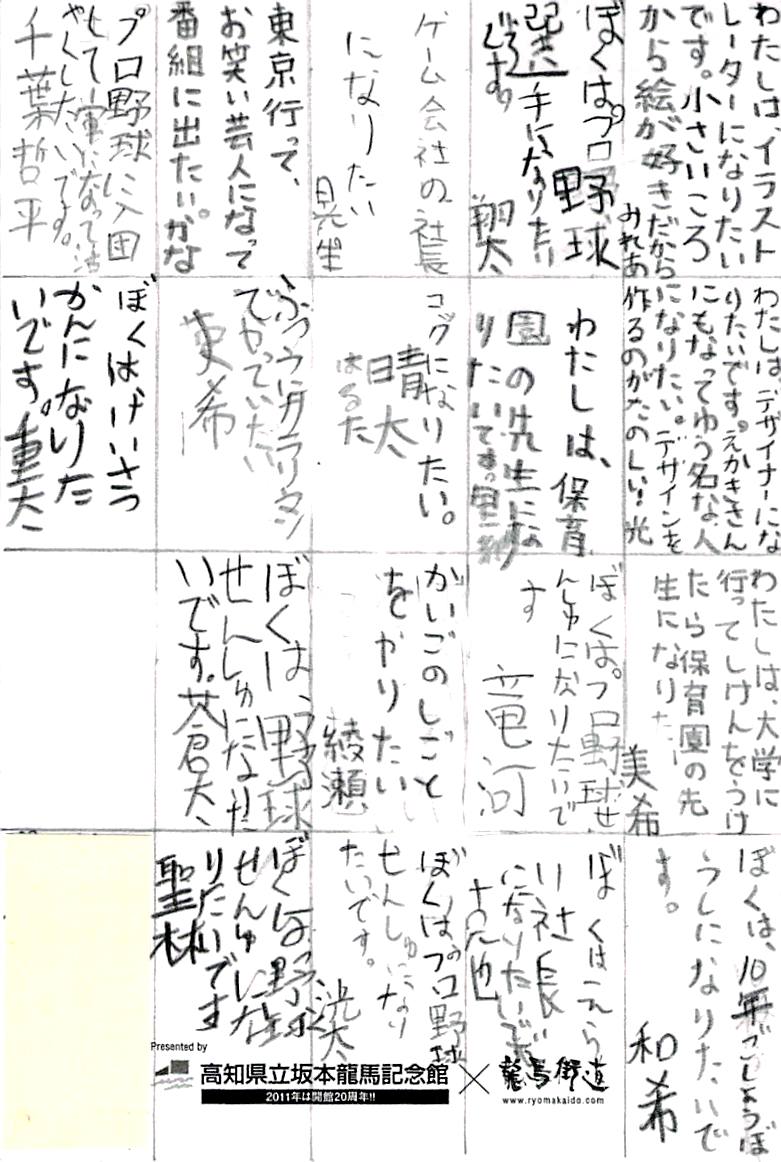 わたしはイラスト
レーターになりたい
です。小さいころ
から絵が好きだから
みれあ
ぼくはプロ野球
選手になりたい
です。
翔太
ゲーム会社の社長
になりたい
晃生
東京行って、
お笑い芸人になって
番組に出たいかな
プロ野球に入団
して一軍になって活
やくしたいです。
千葉哲平
わたしは、デザイナーにな
りたいです。えかきさん
にもなってゆう名な人
になりたい。デザインを
作るのがたのしい!光
わたしは、保育
園の先生にな
りたいです。
コックになりたい。
晴大
はるた
ふつうにサラリマン
でやっていたい
ぼくはけいさつ
かんになりた
いです。重太
わたしは、大学に
行ってしけんをうけ
たら保育園の先
生になりた
美希
ぼくは。プロ野球せ
んしゅになりたいで
す
竜河
かいごのしごと
をやりたい
綾瀬
ぼくは、野球
せんしゅになりた
いです。蒼大
ぼくは、10年ごしょうぼ
うしになりたいで
す。
和希
ぼくはえら
い社長
になりたいです
ぼくはプロ野球
せんしゅになり
たいです。
滉太
ぼくは野球
せんしゅにな
りたいです
聖林
Presented by
高知県立坂本龍馬記念館 × 龍馬街道
2011年は開館20周年!!
www.ryomakaido.com